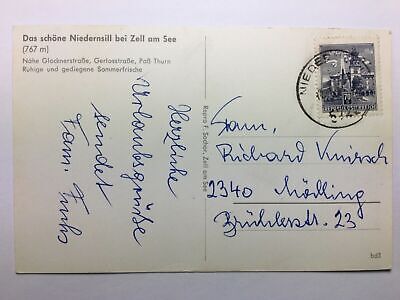 Das schöne Niedernsill bei Zell am See
(767 m)
Nähe Glocknerstraße, Gerlosstraße, Paß Thurn
Ruhige und gediegene Sommerfrische
Herzliche
Urlaubsgrüße
sendet
Fam. Fuchs
Repro F. Sochor, Zell am See
Fam.
Richard Knirsch
2340 Mödling
Brühlerstr. 23
bd3